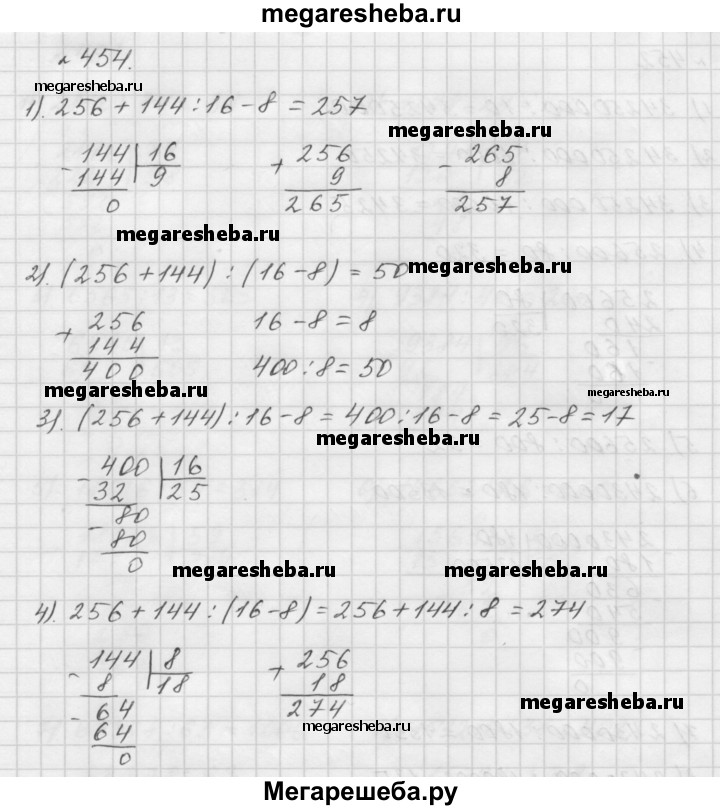 megaresheba.ru
№ 454.
megaresheba.ru
1). 256 + 144 : 16 - 8 = 257
megaresheba.ru
- 144 | 16
144 | 9
0
+ 256
9
265
- 265
8
257
megaresheba.ru
2). (256 + 144) : (16 - 8) = 50
megaresheba.ru
+ 256
144
400
16 - 8 = 8
400 : 8 = 50
megaresheba.ru
megaresheba.ru
3). (256 + 144) : 16 - 8 = 400 : 16 - 8 = 25 - 8 = 17
megaresheba.ru
- 400 | 16
32 | 25
- 80
80
0
megaresheba.ru
megaresheba.ru
4). 256 + 144 : (16 - 8) = 256 + 144 : 8 = 274
- 144 | 8
8 | 18
- 64
64
0
+ 256
18
274
megaresheba.ru
megaresheba.ru
Мегарешеба.ру